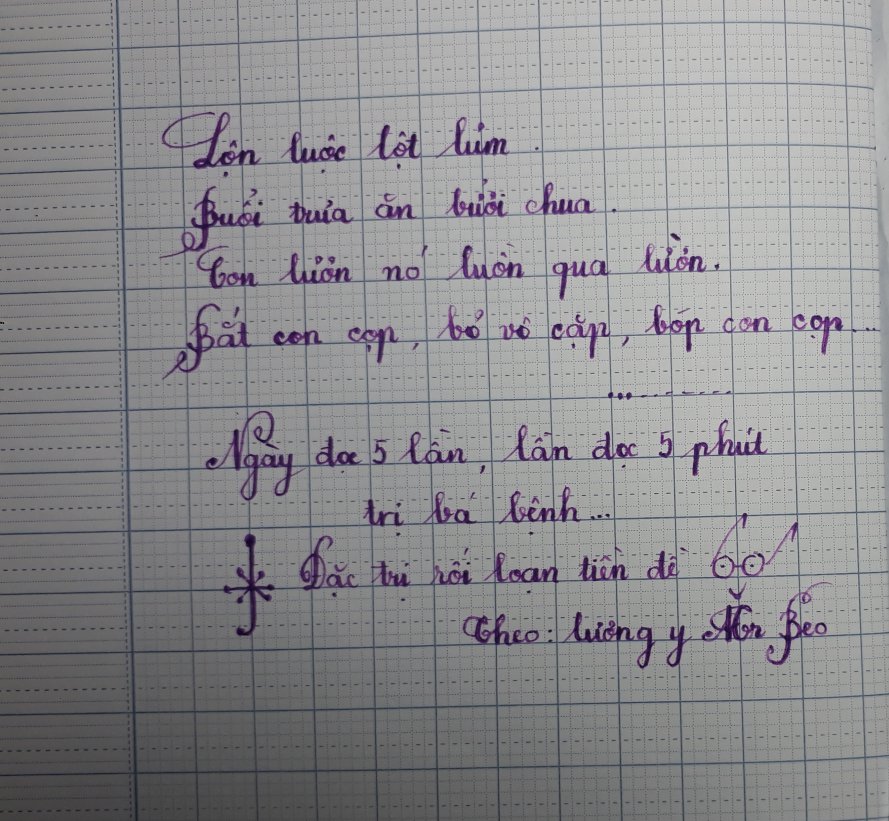 Lộn luộc lột lùm.
Buổi trưa ăn bưởi chua.
Con lươn nó luồn qua lườn.
Bắt con cọp, bỏ vô cặp, bóp con cọp...
...........
Ngày đọc 5 lần, lần đọc 5 phút
trị bá bệnh...
* Đặc trị rối loạn tiền đề
Theo: lương y Béo